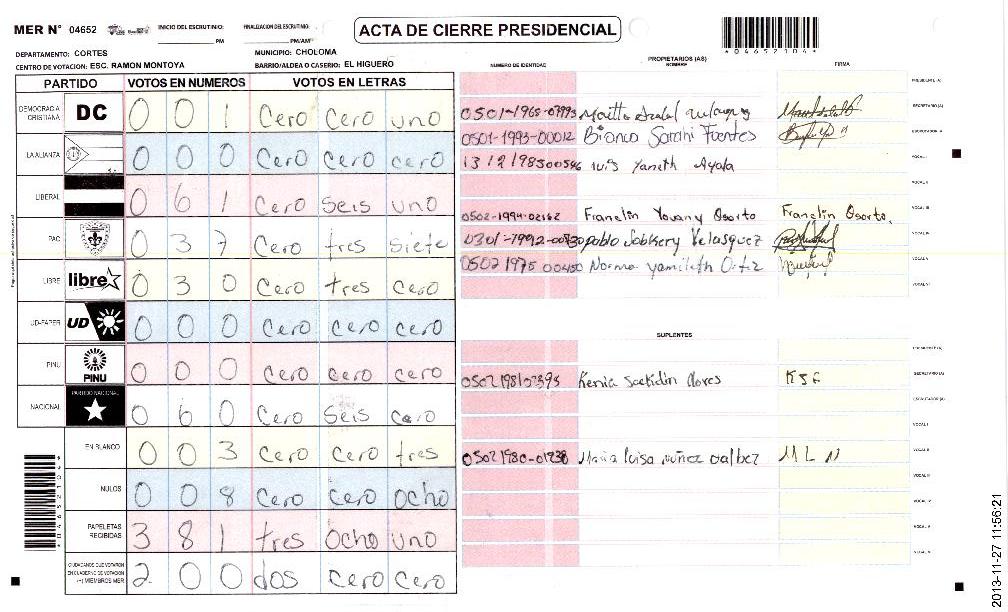 MER N° 04652
INICIO DEL ESCRUTINIO:
PM
FINALIZACION DEL ESCRUTINIO:
PM/AM
ACTA DE CIERRE PRESIDENCIAL
* 0 4 6 5 2 1 0 4 *
DEPARTAMENTO: CORTES
MUNICIPIO: CHOLOMA
CENTRO DE VOTACION: ESC. RAMON MONTOYA
BARRIO/ALDEA O CASERIO: EL HIGUERO
PARTIDO VOTOS EN NUMEROS VOTOS EN LETRAS
DEMOCRACIA CRISTIANA DC 0 0 1 Cero Cero uno
LA ALIANZA 0 0 0 Cero Cero cero
LIBERAL 0 6 1 Cero Seis uno
PAC 0 3 7 Cero tres siete
LIBRE libre 0 3 0 Cero tres Cero
UD-FAPER UD 0 0 0 Cero Cero Cero
PINU PINU 0 0 0 Cero Cero cero
NACIONAL PARTIDO NACIONAL 0 6 0 Cero Seis cero
EN BLANCO 0 0 3 Cero Cero tres
NULOS 0 0 8 Cero cero ocho
PAPELETAS RECIBIDAS 3 8 1 tres ocho uno
CIUDADANOS QUE VOTARON EN CUADERNO DE VOTACION (+) MIEMBROS MER 2 0 0 dos Cero Cero
NUMERO DE IDENTIDAD
PROPIETARIOS (AS)
NOMBRE
FIRMA
PRESIDENTE (A)
SECRETARIO (A)
0501-1993-00012 Bianca Sarahi Fuentes
VOCAL I
Yaneth Ayala
VOCAL II
0502-1994-02162 Franclin Yovany Osorto Franclin Osorto. VOCAL III
Velasquez VOCAL IV
0502 1975 00450 Norma Yamileth Ortiz VOCAL V
VOCAL VI
SUPLENTES
PRESIDENTE (A)
Kenia KSF SECRETARIO (A)
ESCRUTADOR (A)
VOCAL I
Maria luisa nuñez M L N VOCAL II
VOCAL III
VOCAL IV
VOCAL V
VOCAL VI
2013-11-27 11:56:21